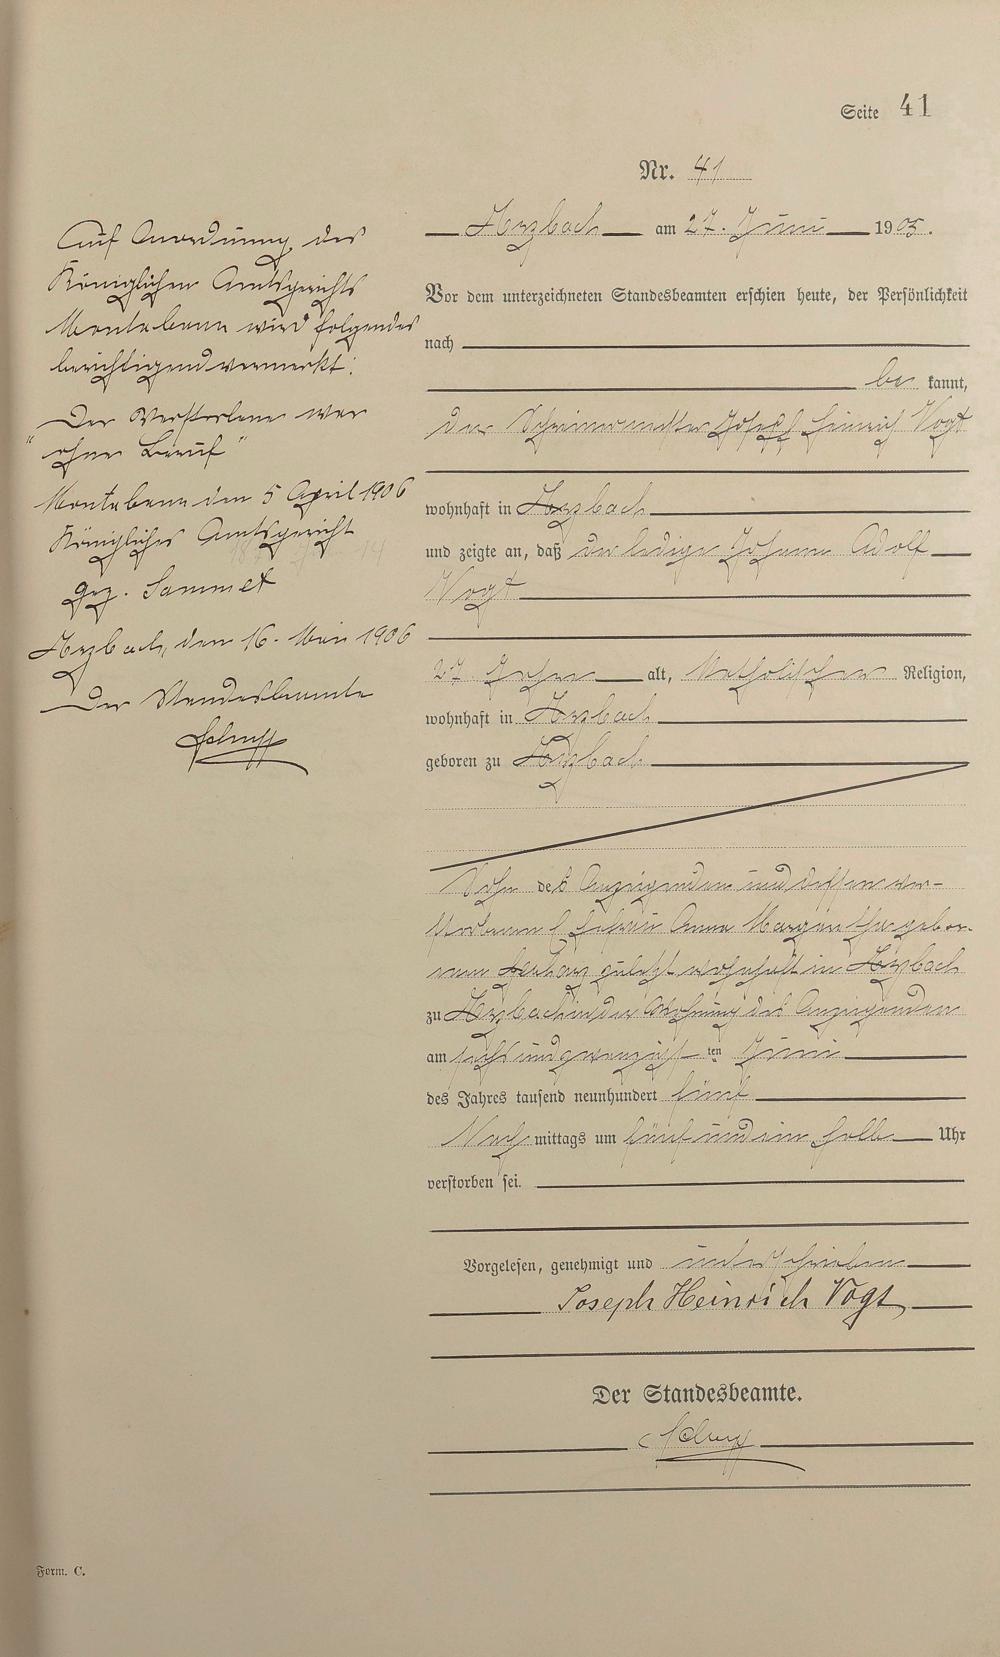 Seite 41
Nr. 41
am 27. Juni 1905.
Auf Anordnung des
Königlichen Amtsgerichts
Montabaur wird folgendes
berichtigend vermerkt:
Der Verstorbene war
"ohne Beruf"
Montabaur den 5 April 1906
Königliches Amtsgericht
gez. Sammet
den 16. Mai 1906
Der Standesbeamte
Vor dem unterzeichneten Standesbeamten erschien heute, der Persönlichkeit
nach
be kannt,
der Joseph Heinrich Vogt
wohnhaft in
und zeigte an, daß der ledige Johann Adolf
Vogt
27 Jahre alt, Katholischer Religion,
wohnhaft in
geboren zu
Sohn des Anzeigenden und dessen ver-
storbenen Ehefrau Anna Margaretha gebor-
nen zuletzt wohnhaft in
zu in der Wohnung des Anzeigenden
am sechsundzwanzigsten Juni
des Jahres tausend neunhundert fünf
Nach mittags um fünf und ein halb Uhr
verstorben sei.
Vorgelesen, genehmigt und unterschrieben
Joseph Heinrich Vogt
Der Standesbeamte.
Form. C.